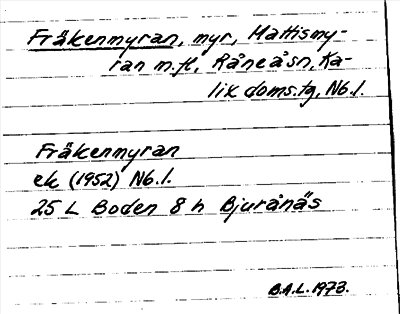 Fräkenmyran, myr, Mattismy-
ran m.fl, Råneåsn, Ka-
lix doms.tg, Nb.l.
Fräkenmyran
ek (1952) Nb.l.
25 L Boden 8 h Bjurånäs
B.A.L. 1973.